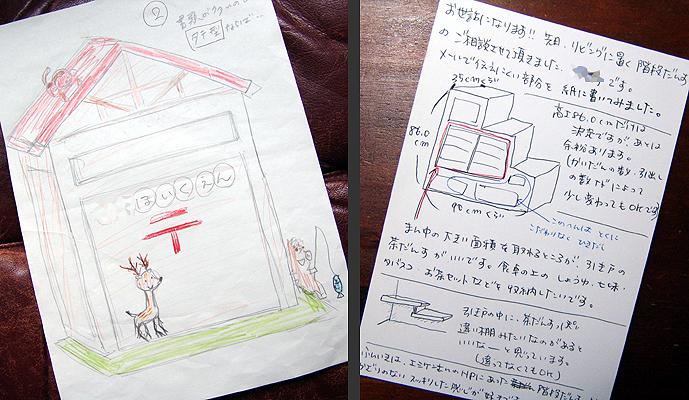 ②
書類が
タテ型 ならば…
ほいくえん
〒
お世話になります!! 先日、リビングに置く階段だんす
のご相談させて頂きました、です。
メールで伝えにくい部分を 紙に書いてみました。
25cmぐらい
86.0
cm
90cmぐらい
高さ86.0cmだけは
決定ですが、あとは
余裕あります。
(かいだんの数、引出し
の数などによって
少し変わってもOKです
このへんは とくに
こだわりなく
まん中の大きい面積を取れるところが、引き戸の
茶だんすがいいです。食卓の上のしょうゆ、七味、
タバスコ、お茶セットなどを収納したいです。
引き戸の中に、茶だんすっぽく
違い棚みたいなのがあると
いいなーと思っています。
(違ってなくてもOK)
のHPにあった 階段だんす
のない スッキリした感じが好き